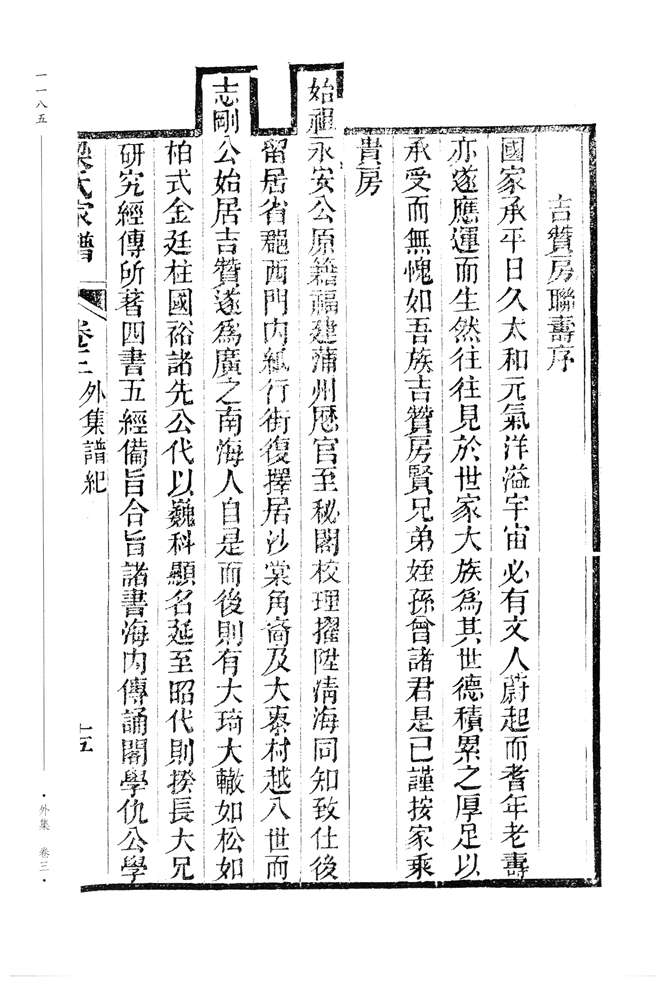 吉贊房聯壽序
國家承平日久太和元氣洋溢宇宙必有文人蔚起而耆年老壽
亦遂應運而生然往往見於世家大族爲其世德積累之厚足以
承受而無愧如吾族吉贊房賢兄弟姪孫曾諸君是已謹按家乘
貴房
始祖永安公原籍福建蒲州歷官至秘閣校理擢陞清海同知致仕後
留居省郡西門內紙行街復擇居沙棠角裔及大泰村越八世而
志剛公始居吉贊遂爲廣之南海人自是而後則有大琦大轍如松如
柏式金廷柱國裕諸先公代以巍科顯名延至昭代則揆長大兄
研究經傳所著四書五經備旨合旨諸書海內傳誦閣學仇公學
梁氏家譜 卷三 外集譜紀 十五
一一八五
·外集 卷三·